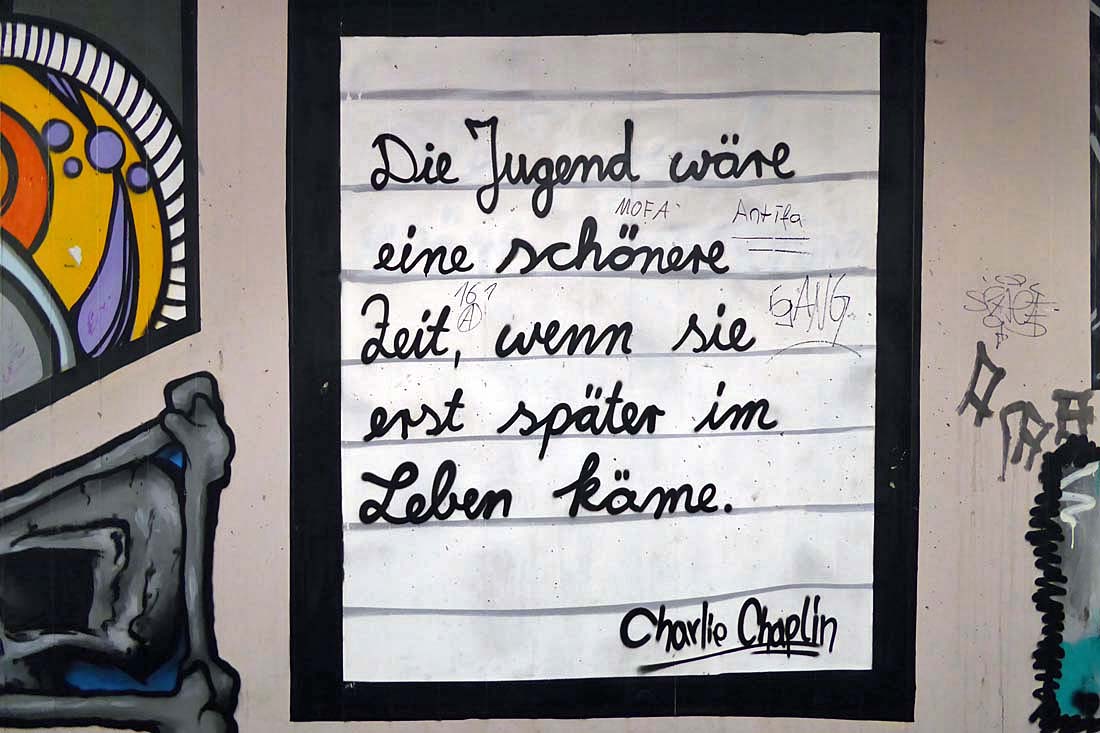 Die Jugend wäre
MOFA Antifa
eine schönere
161
A
Zeit, wenn sie
erst später im
Leben käme.
Charlie Chaplin